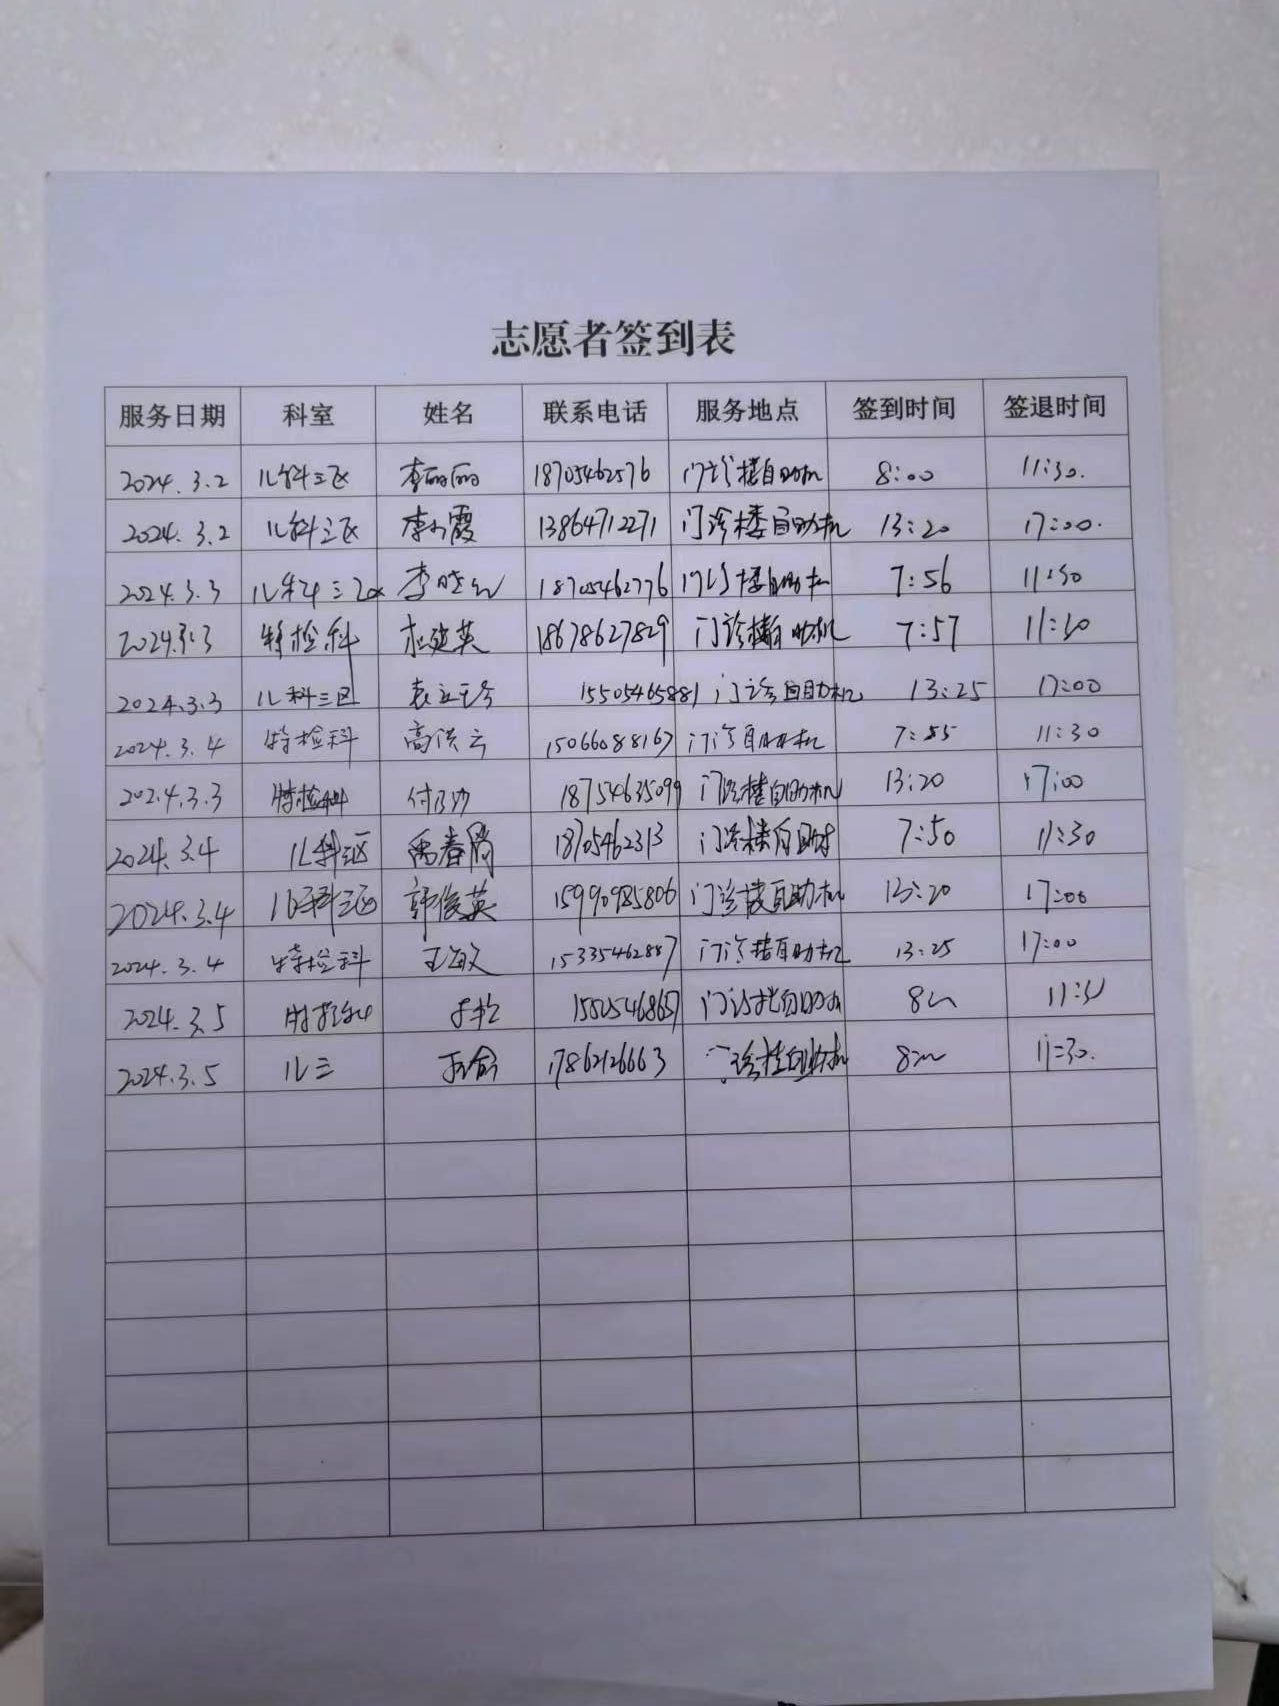 志愿者签到表
服务日期 科室 姓名 联系电话 服务地点 签到时间 签退时间
2024.3.2 儿科三区 李丽丽 18705462576 门诊楼自助机 8:00 11:30.
2024.3.2 儿科三区 李小霞 13864712271 门诊楼自助机 13:20 17:00.
2024.3.3 儿科三区 李晓红 18705462776 门诊楼自助机 7:56 11:30
2024.3.3 特检科 杜建英 18678627829 门诊楼自助机 7:57 11:30
2024.3.3 儿科三区 15505465881 门诊自助机 13:25 17:00
2024.3.4 特检科 高洪云 15066088167 门诊自助机 7:55 11:30
2024.3.3 特检科 18754635099 门诊楼自助机 13:20 17:00
2024.3.4 儿科三区 18705462313 门诊楼自助机 7:50 11:30
2024.3.4 儿科三区 郭俊英 15990985806 门诊楼自助机 13:20 17:00
2024.3.4 特检科 王海文 15335462887 门诊楼自助机 13:25 17:00
2024.3.5 门诊楼自助机
2024.3.5 儿三 17862126663 门诊楼自助机 11:30.